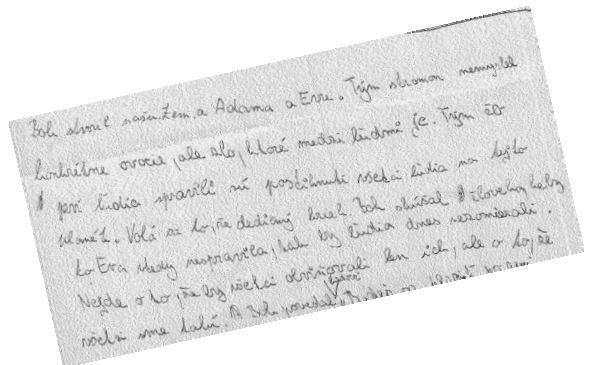 Boh stvoril našu Zem, a Adama a Evu. Tým stromom nemyslel
konkrétne ovocie, ale zlo, ktoré medzi ľudmi je. Tým čo
prví ľudia spravili sú postihnutí všetci ľudia na tejto
planét. Volá sa to, že dedičný hriech. Boh skúšal človeka, keby
to Eva vtedy nespravila, tak by ľudia dnes nezomierali.
Nejde o to, že by všetci obviňovali len ich, ale o to, že
všetci sme takí. A Boh povedal